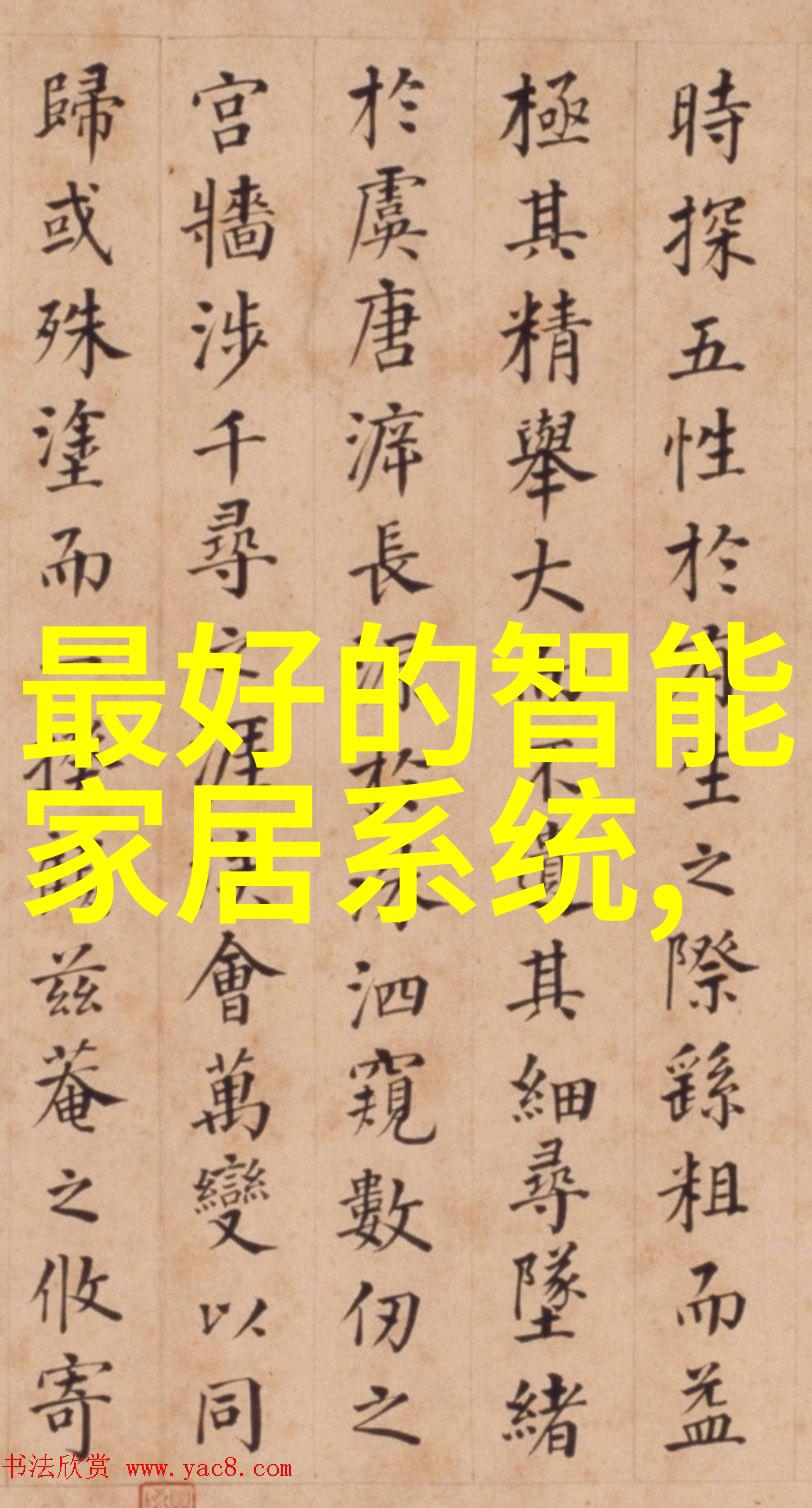 時探五性於有生之際繇粗而益
極其精舉大而不遺其細尋墜緒
於虞唐泝長源於洙泗窺數仞之
宮牆涉千尋之涯涘會萬變以同
歸或殊塗而一揆兹菴之攸寄
最好的智能
家居系统,
书法欣赏 www.yac8.com